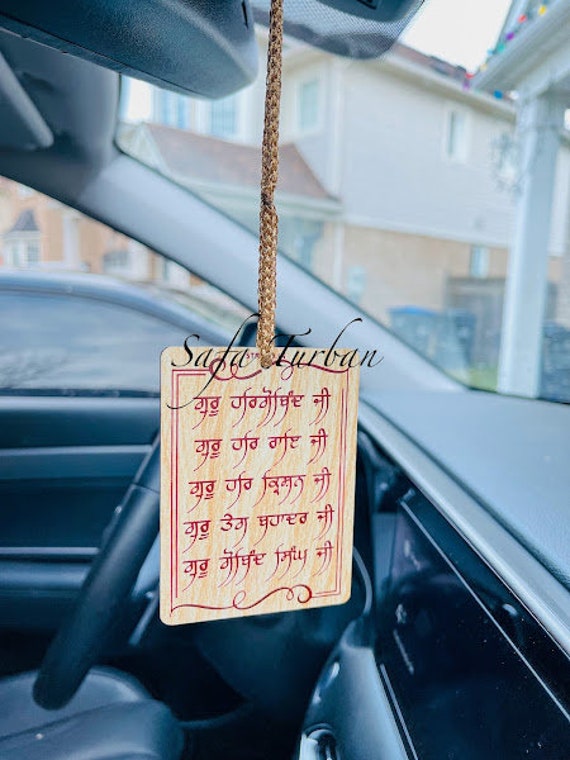 Safa Turban
ਗੁਰੂ ਹਰਿਗੋਬਿੰਦ ਜੀ
ਗੁਰੂ ਹਰਿ ਰਾਇ ਜੀ
ਗੁਰੂ ਹਰਿ ਕ੍ਰਿਸ਼ਨ ਜੀ
ਗੁਰੂ ਤੇਗ ਬਹਾਦਰ ਜੀ
ਗੁਰੂ ਗੋਬਿੰਦ ਸਿੰਘ ਜੀ